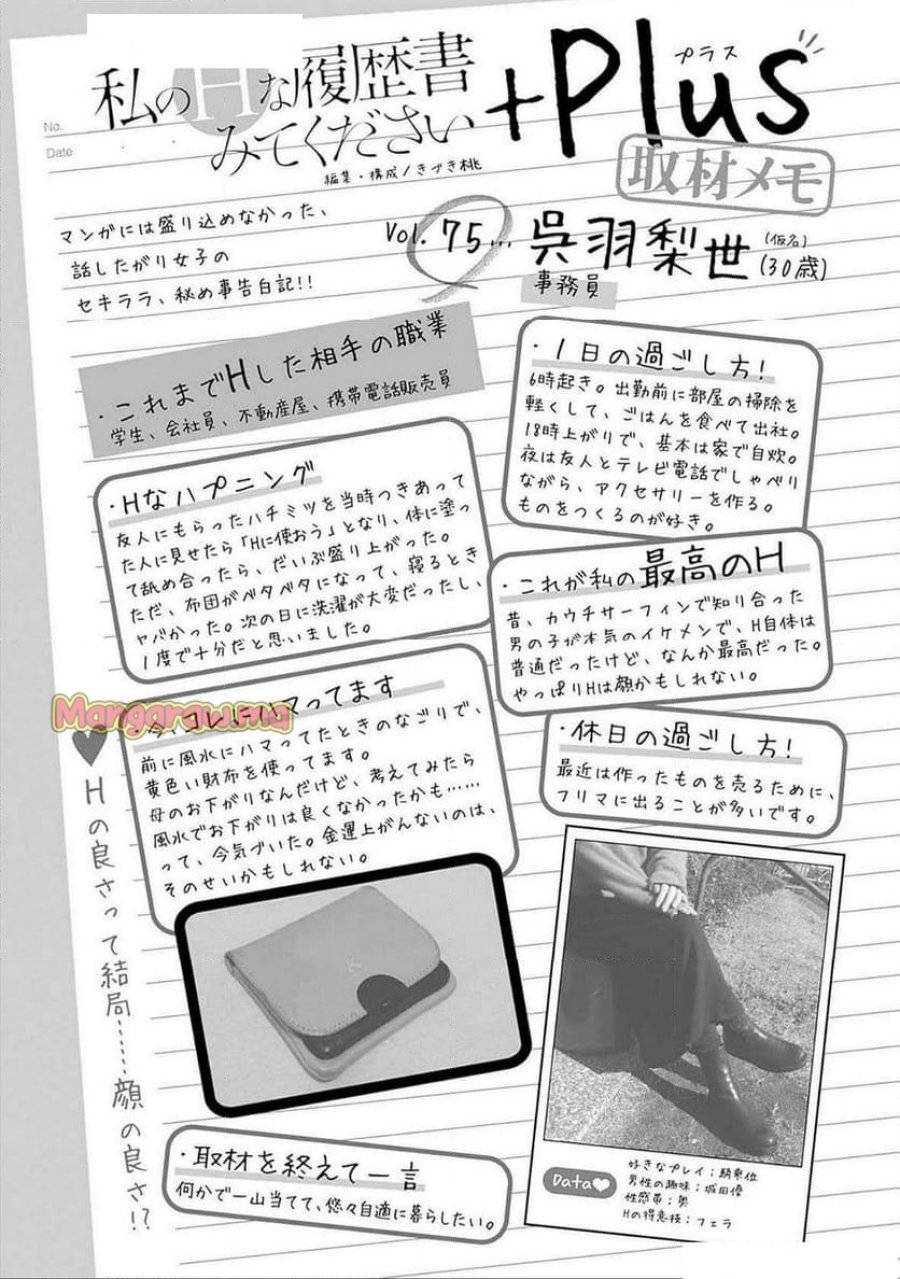 No.
Date
私のHな履歴書
みてください
+Plus
プラス
取材メモ
編集・構成/きづき桃
マンガには盛り込めなかった、
話したがり女子の
セキララ、秘め事告白記!!
Vol. 75…
呉羽梨世
(仮名)
(30歳)
事務員
・これまでHした相手の職業
学生、会社員、不動産屋、携帯電話販売員
・1日の過ごし方!
6時起き。出勤前に部屋の掃除を
軽くして、ごはんを食べて出社。
18時上がりで、基本は家で自炊。
夜は友人とテレビ電話でしゃべり
ながら、アクセサリーを作る。
ものをつくるのが好き。
・Hなハプニング
友人にもらったハチミツを当時つきあって
た人に見せたら「Hに使おう」となり、体に塗っ
て舐め合ったら、だいぶ盛り上がった。
ただ、布団がベタベタになって、寝るとき
ヤバかった。次の日に洗濯が大変だったし、
1度で十分だと思いました。
・これが私の最高のH
昔、カウチサーフィンで知り合った
男の子が本気のイケメンで、H自体は
普通だったけど、なんか最高だった。
やっぱりHは顔かもしれない。
マってます
前に風水にハマってたときのなごりで、
黄色い財布を使ってます。
母のお下がりなんだけど、考えてみたら
風水でお下がりは良くなかったかも……
って、今気づいた。金運上がんないのは、
そのせいかもしれない。
Mangaraw.ma
・休日の過ごし方!
最近は作ったものを売るために、
フリマに出ることが多いです。
♥Hの良さって結局……顔の良さ!?
・取材を終えて一言
何かで一山当てて、悠々自適に暮らしたい。
Data♥
好きなプレイ:騎乗位
男性の趣味:城田優
性感帯:奥
Hの得意技:フェラ